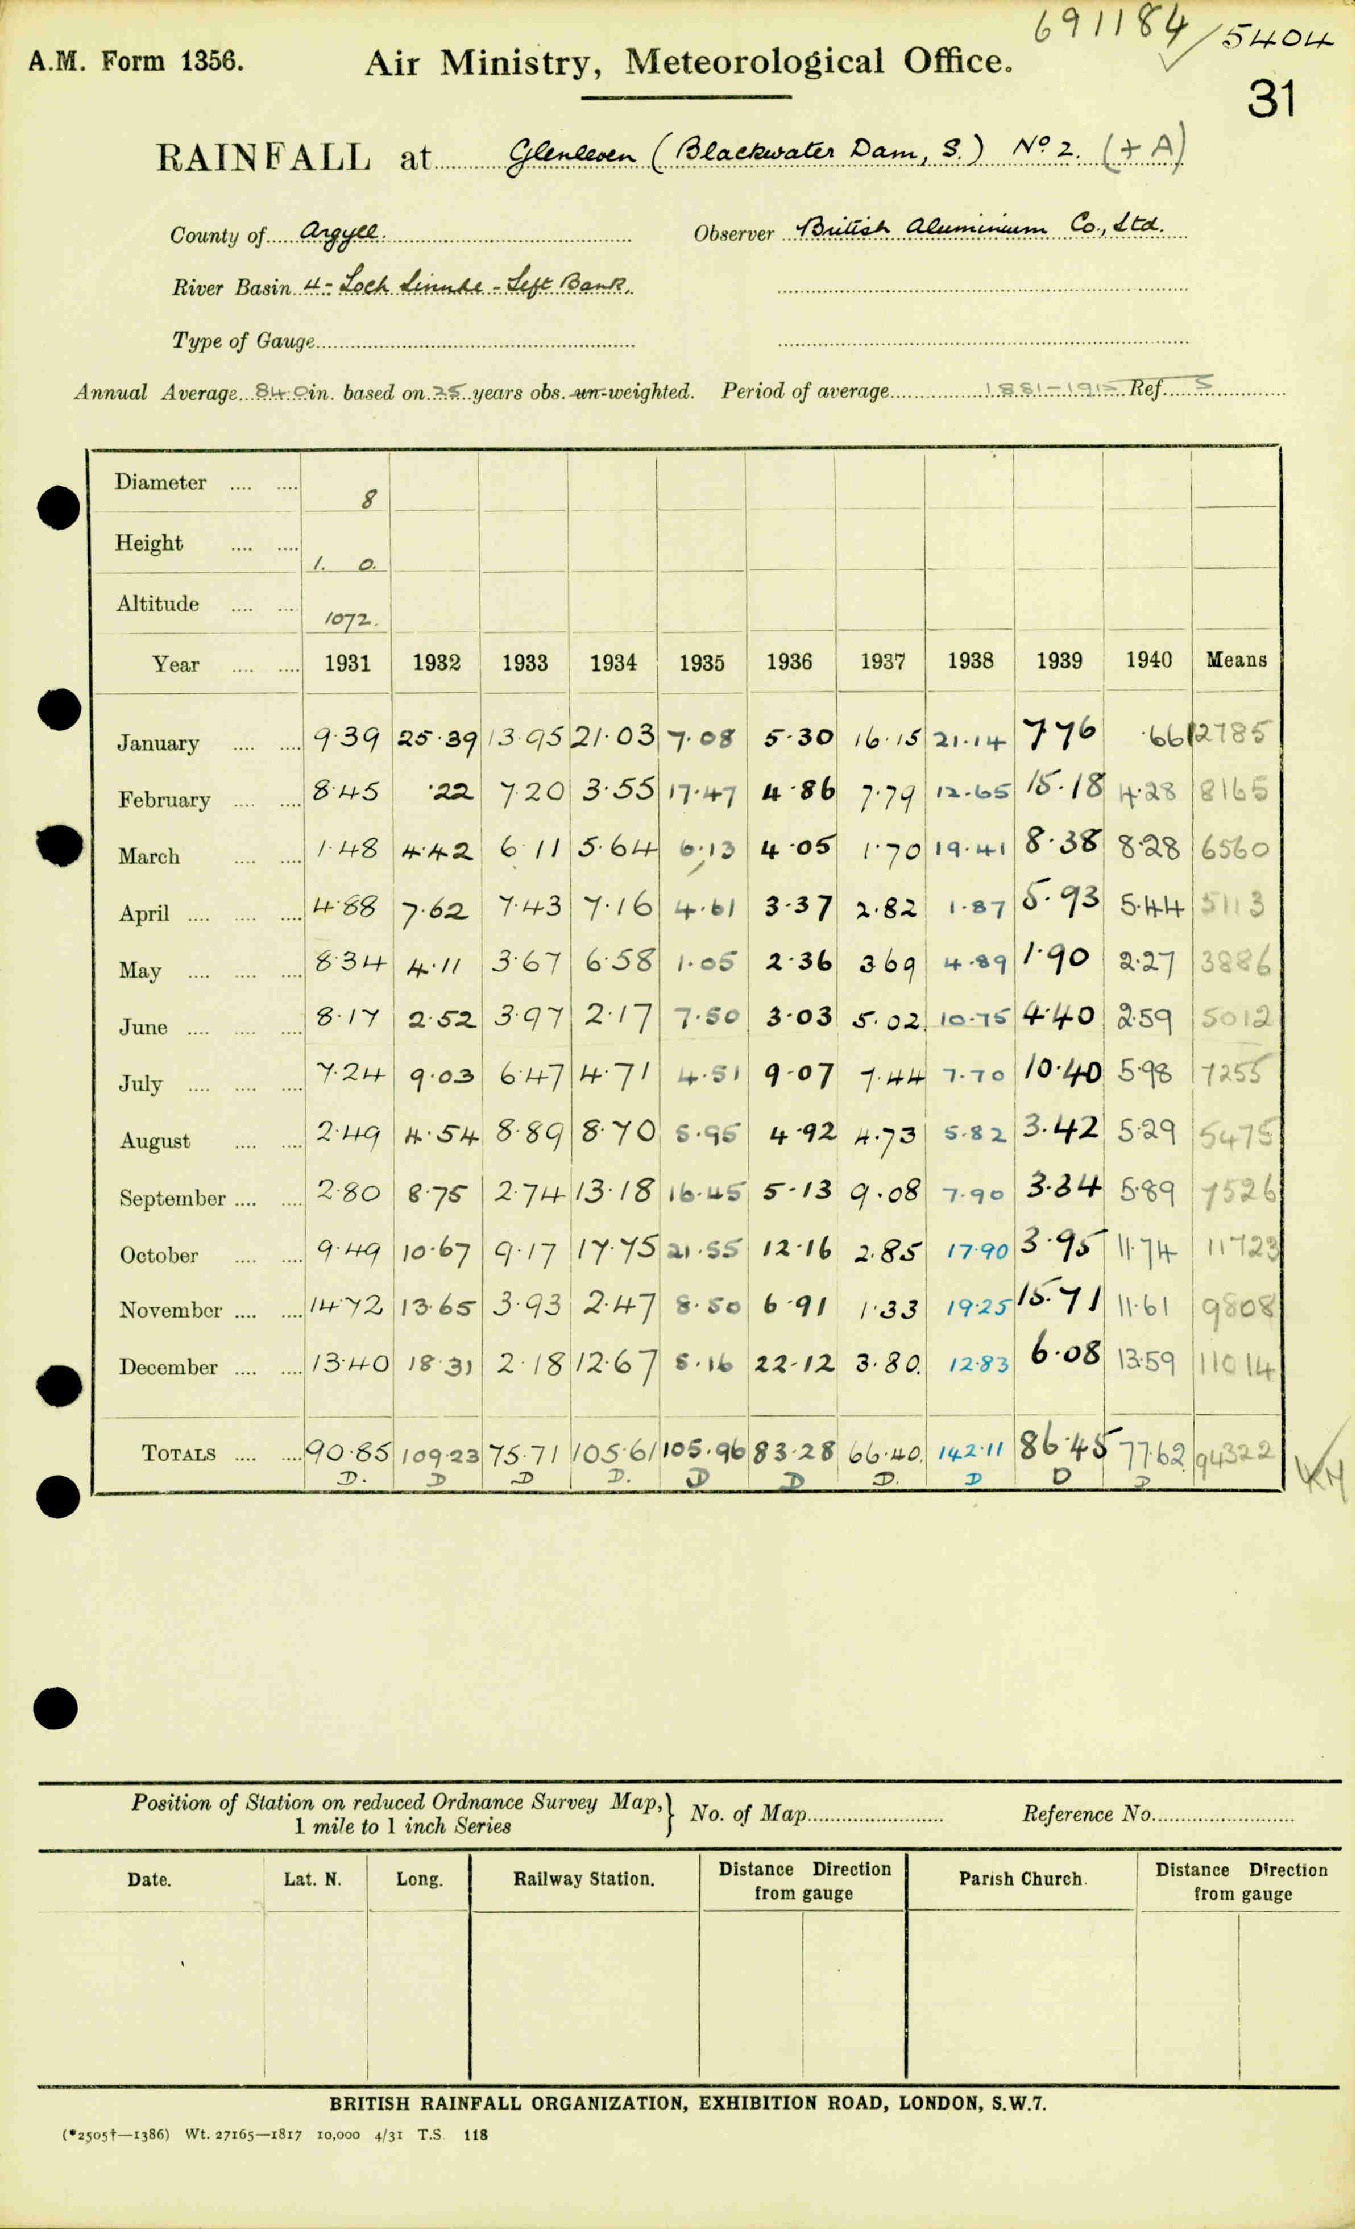 691184 / 5404
A.M. Form 1356. Air Ministry, Meteorological Office.
31
RAINFALL at Glenleven (Blackwater Dam, S.) No 2. (+ A)
County of Argyll. Observer British Aluminium Co., Ltd.
River Basin 4 - Loch Linnhe - Left Bank.
Type of Gauge
Annual Average 84.0 in. based on 25 years obs. un-weighted. Period of average 1881-1915 Ref. S
Diameter .... .... 8
Height .... .... 1. 0.
Altitude .... .... 1072.
Year .... .... 1931 1932 1933 1934 1935 1936 1937 1938 1939 1940 Means
January .... .... 9.39 25.39 13.95 21.03 7.08 5.30 16.15 21.14 7.76 .66 12785
February .... .... 8.45 .22 7.20 3.55 17.47 4.86 7.79 12.65 15.18 4.28 8165
March .... .... 1.48 4.42 6.11 5.64 6.13 4.05 1.70 19.41 8.38 8.28 6560
April .... .... .... 4.88 7.62 7.43 7.16 4.61 3.37 2.82 1.87 5.93 5.44 5113
May .... .... .... 8.34 4.11 3.67 6.58 1.05 2.36 3.69 4.89 1.90 2.27 3886
June .... .... .... 8.17 2.52 3.97 2.17 7.50 3.03 5.02 10.75 4.40 2.59 5012
July .... .... .... 7.24 9.03 6.47 4.71 4.51 9.07 7.44 7.70 10.40 5.98 7255
August .... .... 2.49 4.54 8.89 8.70 5.95 4.92 4.73 5.82 3.42 5.29 5475
September .... .... 2.80 8.75 2.74 13.18 16.45 5.13 9.08 7.90 3.34 5.89 7526
October .... .... 9.49 10.67 9.17 17.75 21.55 12.16 2.85 17.90 3.95 11.74 11723
November .... .... 14.72 13.65 3.93 2.47 8.50 6.91 1.33 19.25 15.71 11.61 9808
December .... .... 13.40 18.31 2.18 12.67 5.16 22.12 3.80 12.83 6.08 13.59 11014
TOTALS .... .... 90.85 109.23 75.71 105.61 105.96 83.28 66.40 142.11 86.45 77.62 94322
D. D D D. D D D. D D D
Position of Station on reduced Ordnance Survey Map, } No. of Map Reference No.
1 mile to 1 inch Series
Date. Lat. N. Long. Railway Station. Distance Direction from gauge Parish Church. Distance Direction from gauge
BRITISH RAINFALL ORGANIZATION, EXHIBITION ROAD, LONDON, S.W.7.
(*2505†—1386) Wt. 27165—1817 10,000 4/31 T.S. 118